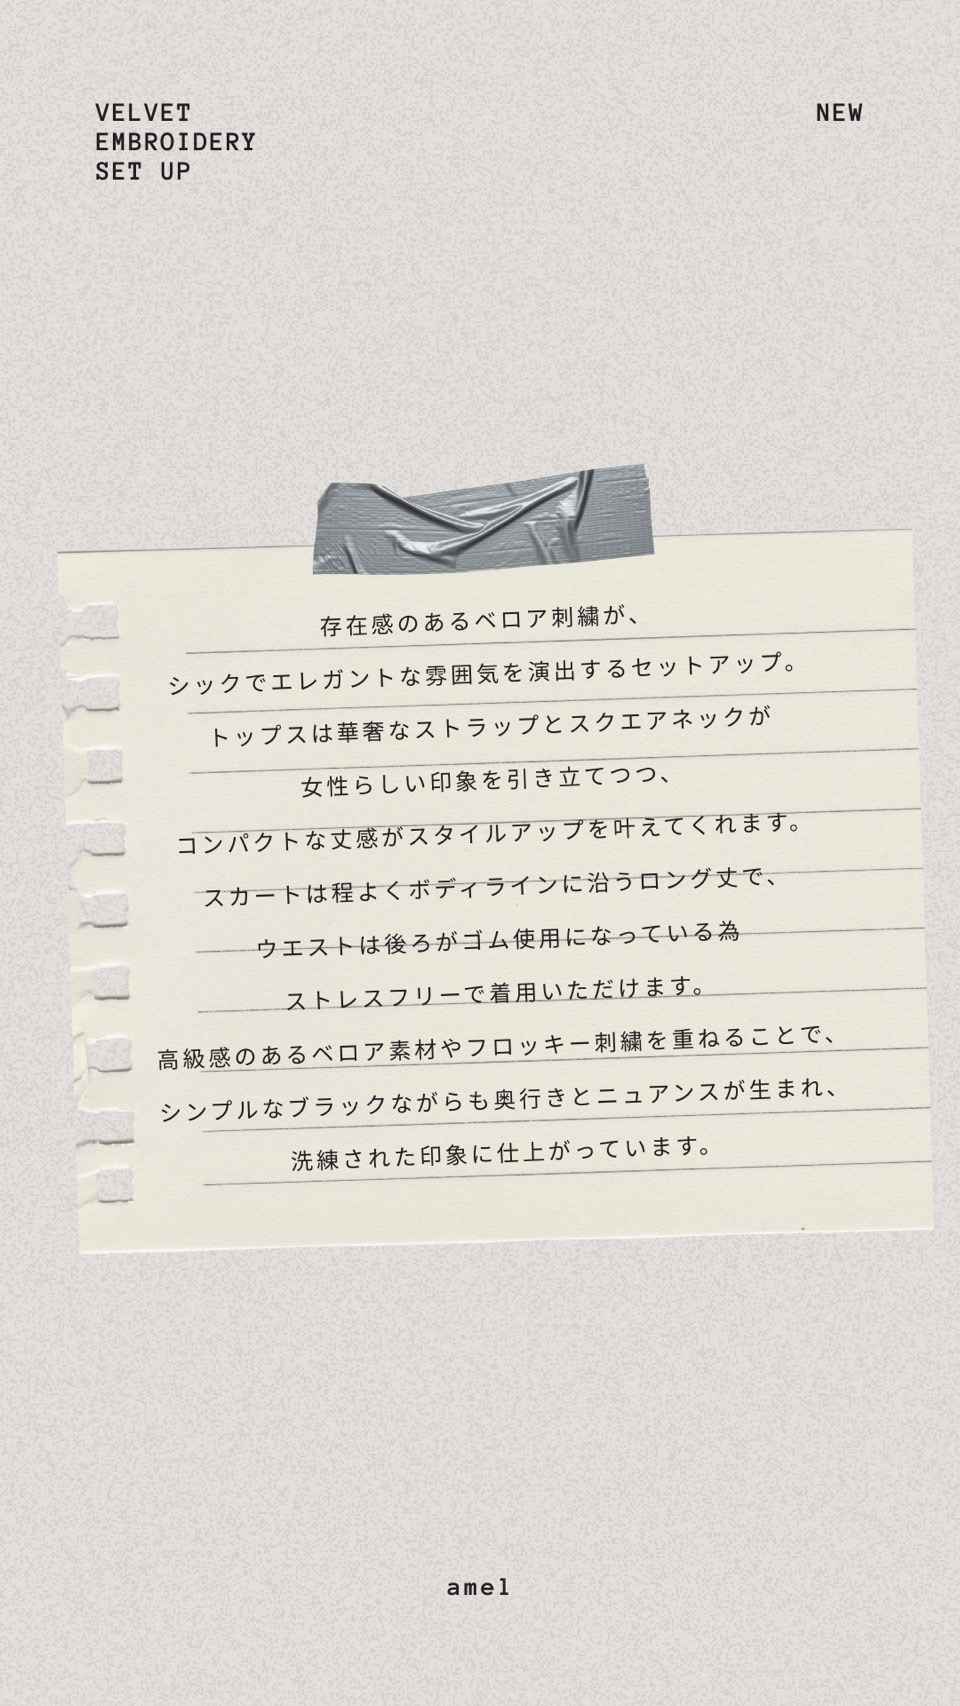 VELVET
EMBROIDERY
SET UP
NEW
存在感のあるベロア刺繍が、
シックでエレガントな雰囲気を演出するセットアップ。
トップスは華奢なストラップとスクエアネックが
女性らしい印象を引き立てつつ、
コンパクトな丈感がスタイルアップを叶えてくれます。
スカートは程よくボディラインに沿うロング丈で、
ウエストは後ろがゴム使用になっている為
ストレスフリーで着用いただけます。
高級感のあるベロア素材やフロッキー刺繍を重ねることで、
シンプルなブラックながらも奥行きとニュアンスが生まれ、
洗練された印象に仕上がっています。
amel